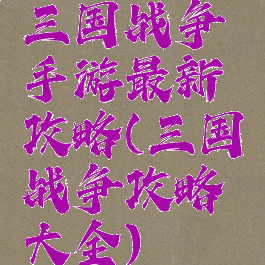 三国战争
手游最新
攻略(三国
战争攻略
大全)